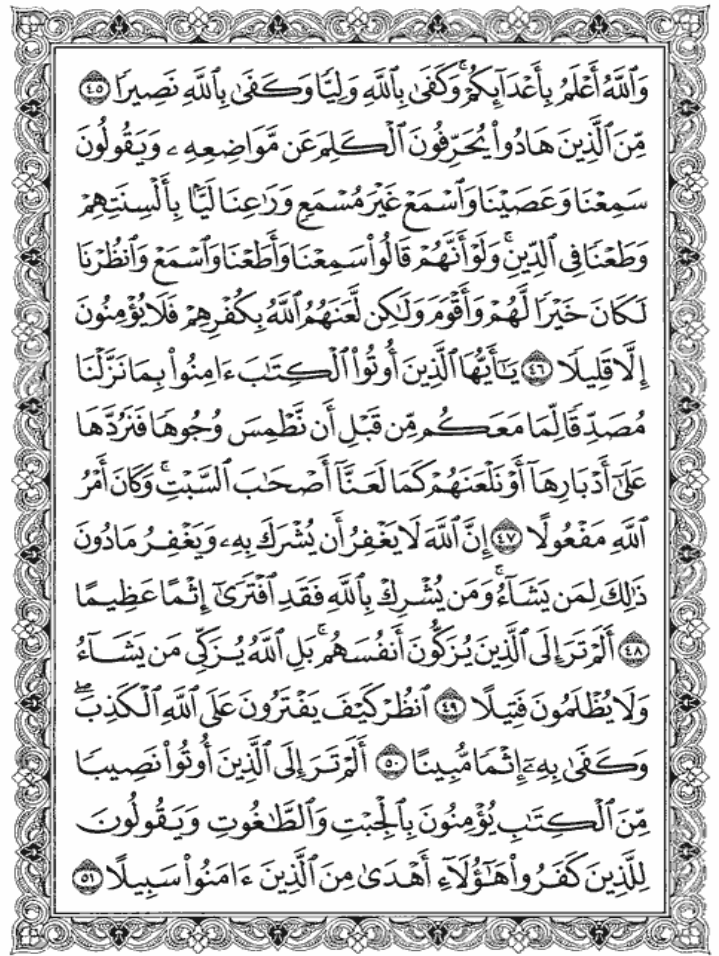 وَٱللَّهُ أَعۡلَمُ بِأَعۡدَآئِكُمۡۚ وَكَفَىٰ بِٱللَّهِ وَلِيّٗا وَكَفَىٰ بِٱللَّهِ نَصِيرٗا ٤٥
مِّنَ ٱلَّذِينَ هَادُواْ يُحَرِّفُونَ ٱلۡكَلِمَ عَن مَّوَاضِعِهِۦ وَيَقُولُونَ
سَمِعۡنَا وَعَصَيۡنَا وَٱسۡمَعۡ غَيۡرَ مُسۡمَعٖ وَرَٰعِنَا لَيَّۢا بِأَلۡسِنَتِهِمۡ
وَطَعۡنٗا فِي ٱلدِّينِۚ وَلَوۡ أَنَّهُمۡ قَالُواْ سَمِعۡنَا وَأَطَعۡنَا وَٱسۡمَعۡ وَٱنظُرۡنَا
لَكَانَ خَيۡرٗا لَّهُمۡ وَأَقۡوَمَ وَلَٰكِن لَّعَنَهُمُ ٱللَّهُ بِكُفۡرِهِمۡ فَلَا يُؤۡمِنُونَ
إِلَّا قَلِيلٗا ٤٦ يَٰٓأَيُّهَا ٱلَّذِينَ أُوتُواْ ٱلۡكِتَٰبَ ءَامِنُواْ بِمَا نَزَّلۡنَا
مُصَدِّقٗا لِّمَا مَعَكُم مِّن قَبۡلِ أَن نَّطۡمِسَ وُجُوهٗا فَنَرُدَّهَا
عَلَىٰٓ أَدۡبَارِهَآ أَوۡ نَلۡعَنَهُمۡ كَمَا لَعَنَّآ أَصۡحَٰبَ ٱلسَّبۡتِۚ وَكَانَ أَمۡرُ
ٱللَّهِ مَفۡعُولًا ٤٧ إِنَّ ٱللَّهَ لَا يَغۡفِرُ أَن يُشۡرَكَ بِهِۦ وَيَغۡفِرُ مَا دُونَ
ذَٰلِكَ لِمَن يَشَآءُۚ وَمَن يُشۡرِكۡ بِٱللَّهِ فَقَدِ ٱفۡتَرَىٰٓ إِثۡمًا عَظِيمًا
٤٨ أَلَمۡ تَرَ إِلَى ٱلَّذِينَ يُزَكُّونَ أَنفُسَهُمۚ بَلِ ٱللَّهُ يُزَكِّي مَن يَشَآءُ
وَلَا يُظۡلَمُونَ فَتِيلًا ٤٩ ٱنظُرۡ كَيۡفَ يَفۡتَرُونَ عَلَى ٱللَّهِ ٱلۡكَذِبَۖ
وَكَفَىٰ بِهِۦٓ إِثۡمٗا مُّبِينًا ٥٠ أَلَمۡ تَرَ إِلَى ٱلَّذِينَ أُوتُواْ نَصِيبٗا
مِّنَ ٱلۡكِتَٰبِ يُؤۡمِنُونَ بِٱلۡجِبۡتِ وَٱلطَّٰغُوتِ وَيَقُولُونَ
لِلَّذِينَ كَفَرُواْ هَٰٓؤُلَآءِ أَهۡدَىٰ مِنَ ٱلَّذِينَ ءَامَنُواْ سَبِيلًا ٥١